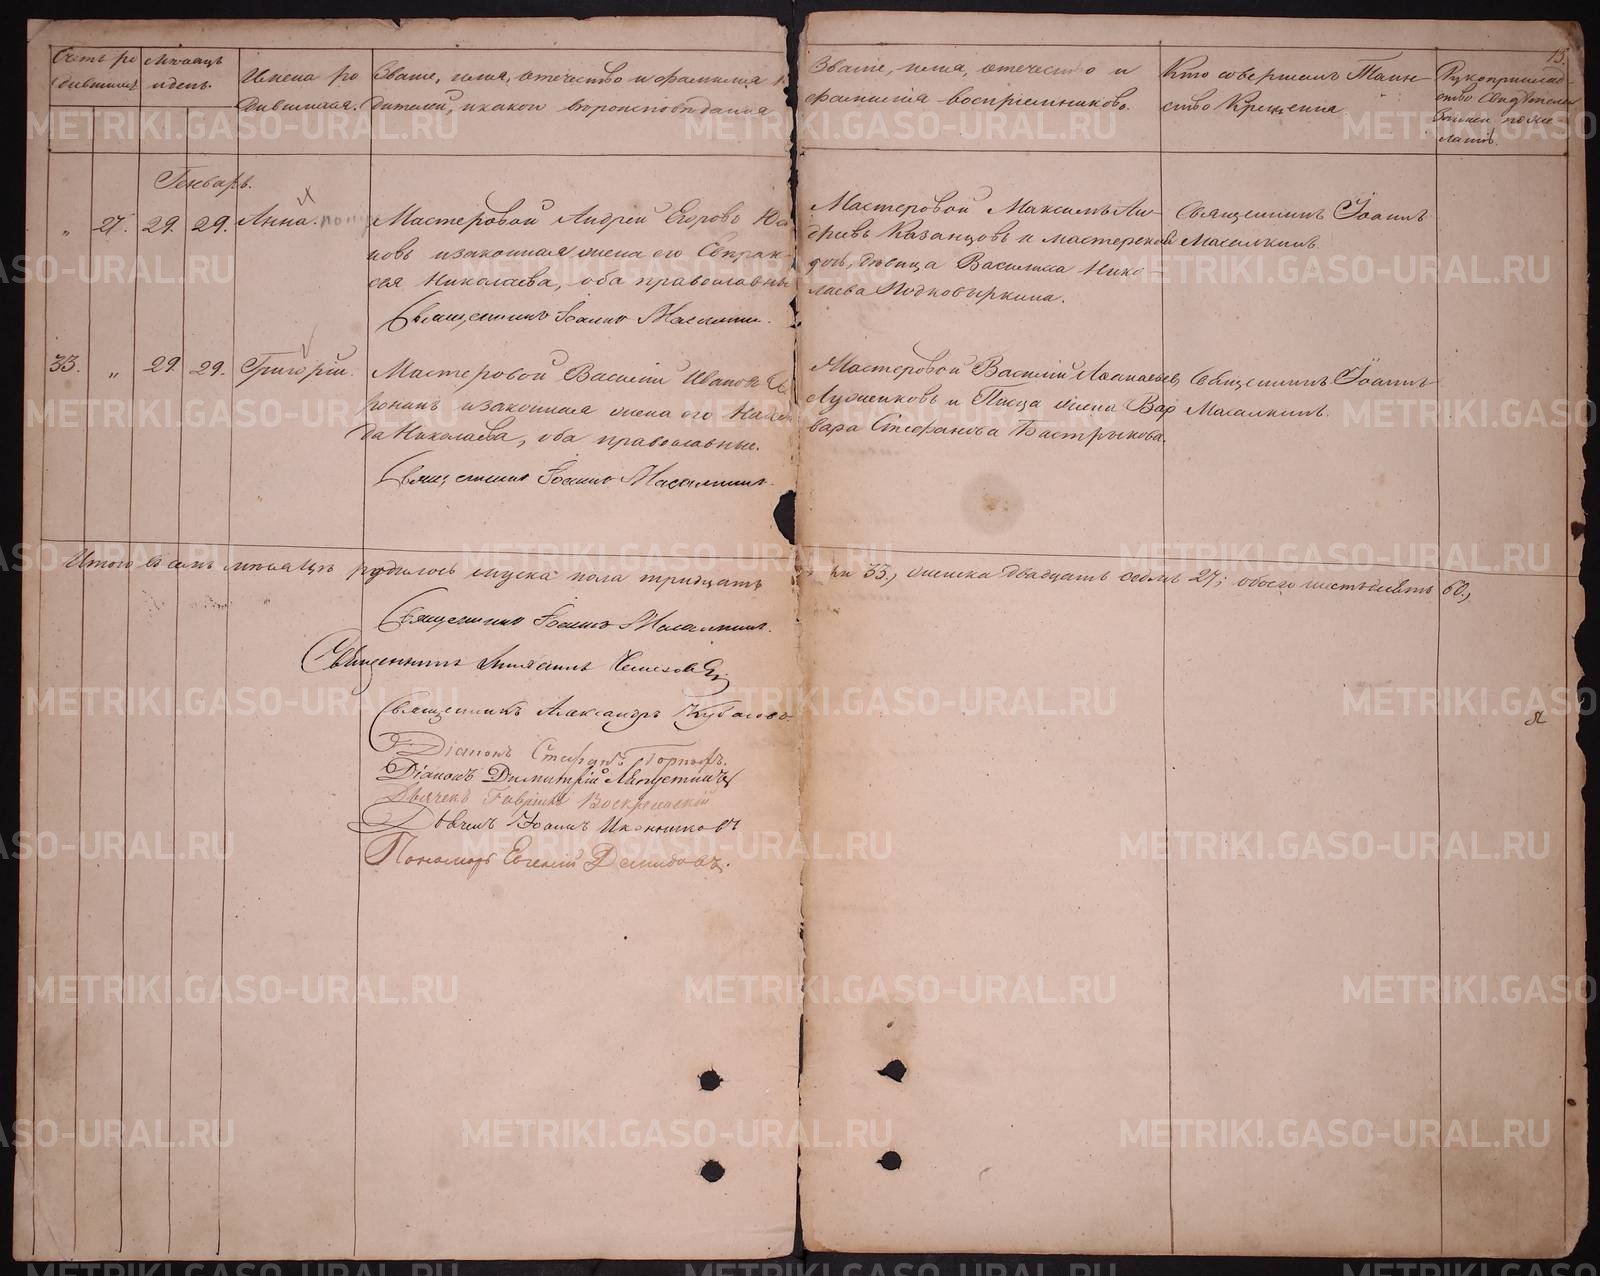 15.
Счетъ ро
дившихся
Мѣсяцъ
и день.
Имена ро
дившихся.
Званіе, имя, отечество и фамилія
дителей, и какого вѣроисповѣданія
Званіе, имя, отечество и
фамилія воспріемниковъ.
Кто совершалъ Таин-
ство Крещенія
Рукоприклад-
ство свидѣтелей
Генварь.
„ 27. 29. 29. Анна.
Мастеровой Андрей Егоровъ
новъ и законная жена его Евпрак-
сія Николаева, оба православны
Священникъ Іоаннъ Масалкинъ.
Мастеровой Максимъ Ан-
дреевъ Казанцовъ и мастерской
дочь, дѣвица Василиса Нико-
лаева Подковыркина.
Священникъ Іоаннъ
Масалкинъ.
33. „ 29. 29. Григорій.
Мастеровой Василій Ивановъ
и законная жена его
да Николаева, оба православные.
Священникъ Іоаннъ Масалкинъ.
Мастеровой Василій Аѳанасьевъ
Лузенковъ и Писца жена Вар
вара Стефанова Бастрыкова.
Священникъ Іоаннъ
Масалкинъ.
Итого въ семъ мѣсяцѣ родилось мужеска пола тридцать
три 33., женска двадцать семь 27; обоего шестьдесятъ 60.,
Священникъ Іоаннъ Масалкинъ.
Священникъ
Священникъ Александръ Кубасовъ
Діаконъ Стефанъ
Діаконъ Димитрій Августиновъ
Дьячекъ Гавріилъ Воскресенскій
Дьячекъ Іоаннъ Иконниковъ
Пономарь Евгеній Демидовъ.
METRIKI.GASO-URAL.RU